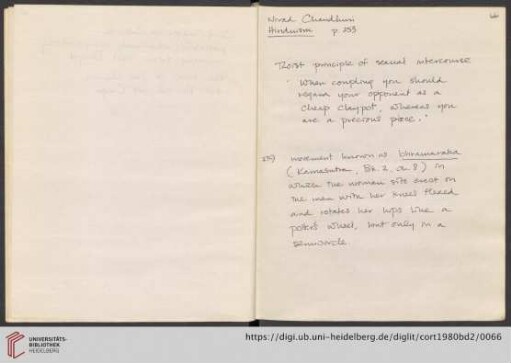 66
Nirad Chaudhuri
Hinduism p. 253
Taoist principle of sexual intercourse
"When coupling you should
regard your opponent as a
cheap claypot, whereas you
are a precious place."
257 movement known as bhramaraka
(Kamasutra, Bk. 2, ch. 8) in
which the woman sits erect on
the man with her knees flexed
and rotates her hips like a
potter's wheel, but only in a
semicircle
UNIVERSITÄTS-
BIBLIOTHEK
HEIDELBERG
https://digi.ub.uni-heidelberg.de/diglit/cort1980bd2/0066